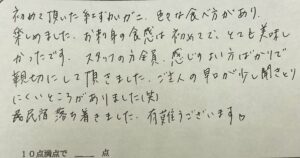 初めて頂いた紅ずわいガニ、色々な食べ方があり、
楽しめました。お刺身の食感は初めてで、とても美味し
かったです。スタッフの方全員、感じのよい方ばかりで
親切にして頂きました。ご主人の早口が少し聞きとり
にくいところがありました(笑)
古民宿 落ち着きました。有難うございます♡
10点満点で 点